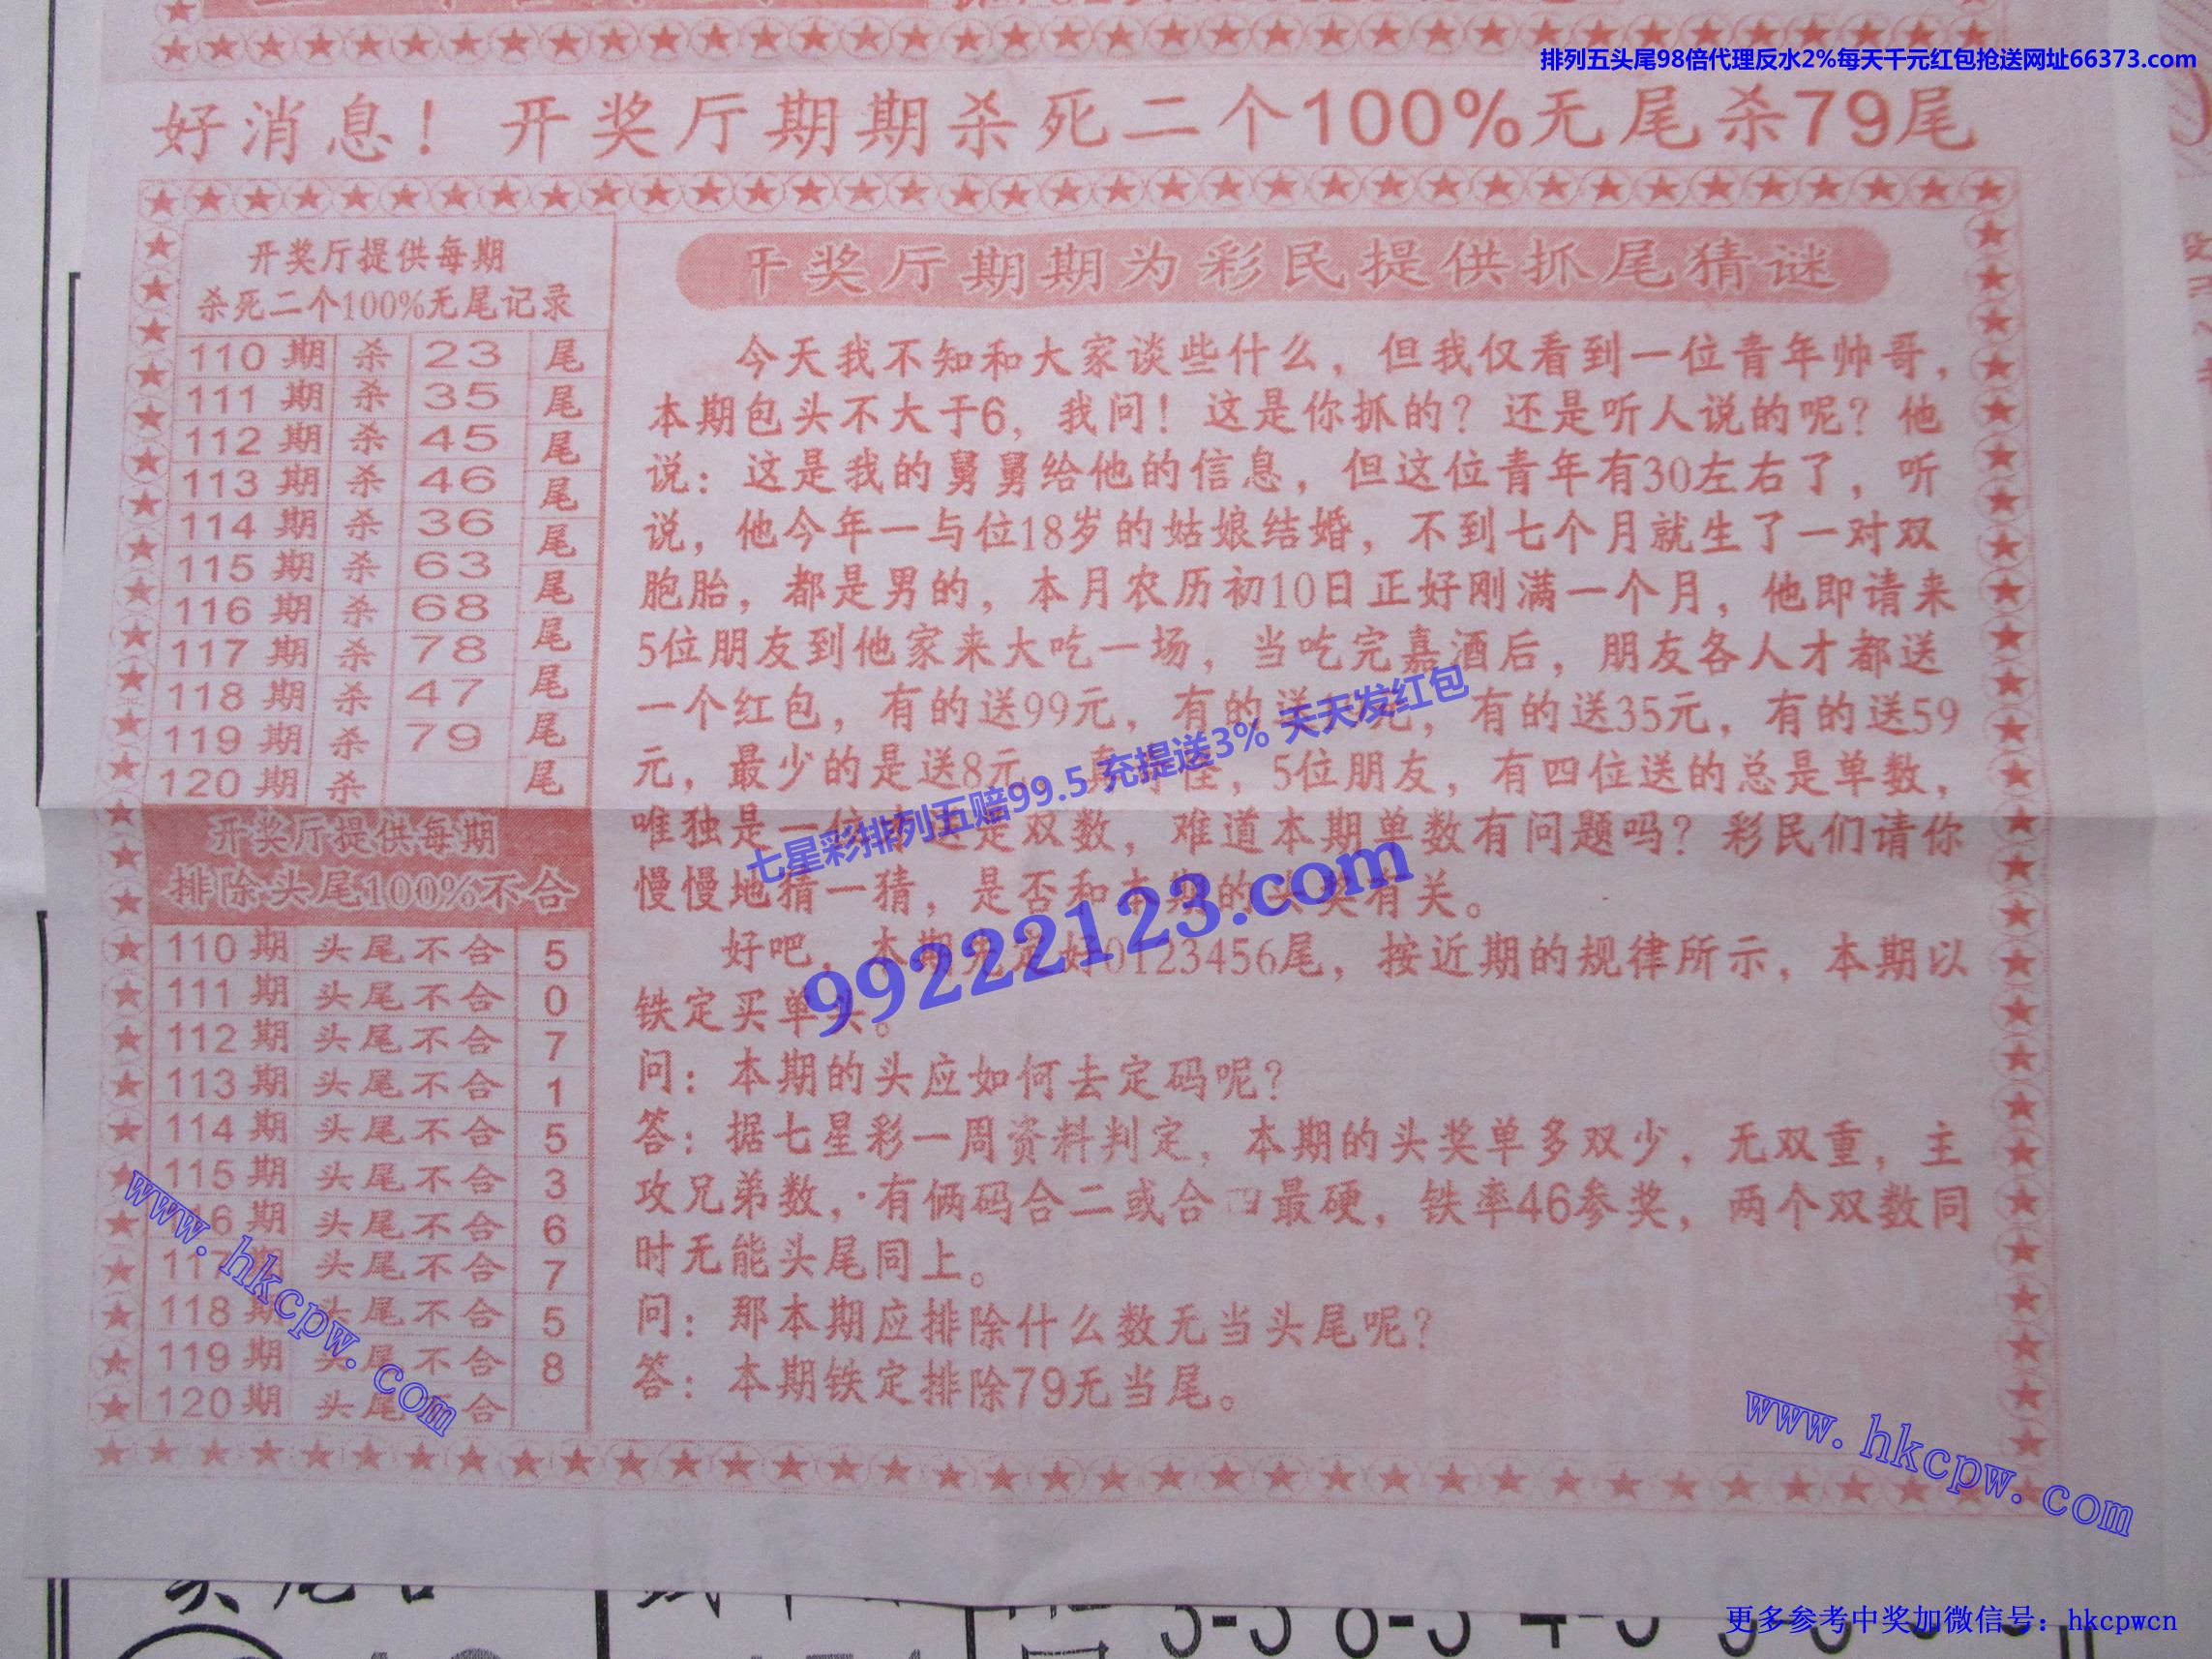 排列五头尾98倍代理反水2%每天千元红包抢送网址66373.com
好消息！开奖厅期期杀死二个100%无尾杀79尾
开奖厅提供每期
杀死二个100%无尾记录
110期 杀 23 尾
111期 杀 35 尾
112期 杀 45 尾
113期 杀 46 尾
114期 杀 36 尾
115期 杀 63 尾
116期 杀 68 尾
117期 杀 78 尾
118期 杀 47 尾
119期 杀 79 尾
120期 杀 尾
开奖厅提供每期
排除头尾100%不合
110期 头尾不合 5
111期 头尾不合 0
112期 头尾不合 7
113期 头尾不合 1
114期 头尾不合 5
115期 头尾不合 3
116期 头尾不合 6
117期 头尾不合 7
118期 头尾不合 5
119期 头尾不合 8
120期 头尾不合
奖厅期期为彩民提供抓尾猜谜
今天我不知和大家谈些什么，但我仅看到一位青年帅哥，
本期包头不大于6，我问！这是你抓的？还是听人说的呢？他
说：这是我的舅舅给他的信息，但这位青年有30左右了，听
说，他今年一与位18岁的姑娘结婚，不到七个月就生了一对双
胞胎，都是男的，本月农历初10日正好刚满一个月，他即请来
5位朋友到他家来大吃一场，当吃完嘉酒后，朋友各人才都送
一个红包，有的送99元，有的送元，有的送35元，有的送59
元，最少的是送8元，真奇怪，5位朋友，有四位送的总是单数，
唯独是一位是双数，难道本期单数有问题吗？彩民们请你
慢慢地猜一猜，是否和本期的头奖有关。
好吧，本期先定好0123456尾，按近期的规律所示，本期以
铁定买单头。
问：本期的头应如何去定码呢？
答：据七星彩一周资料判定，本期的头奖单多双少，无双重，主
攻兄弟数，·有俩码合二或合四最硬，铁率46参奖，两个双数同
时无能头尾同上。
问：那本期应排除什么数无当头尾呢？
答：本期铁定排除79无当尾。
七星彩排列五赔99.5 充提送3% 天天发红包
99222123.com
www.hkcpw.com
www.hkcpw.com
更多参考中奖加微信号：hkcpwcn